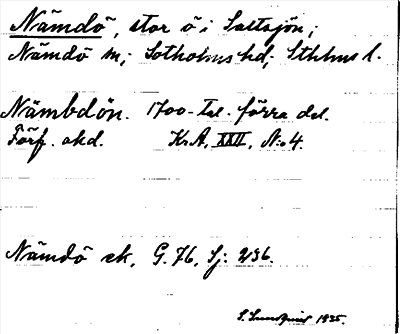 Nämdö, stor ö i Saltsjön;
Nämdö sn; Sotholms hd; Sthlms l.
Nämbdön. 1700-tal. förra del.
Förf. okd. KrA, XXII, N:o 4.
Nämdö sk, G. 76, Sj: 236.
S. Sundquist 1935.